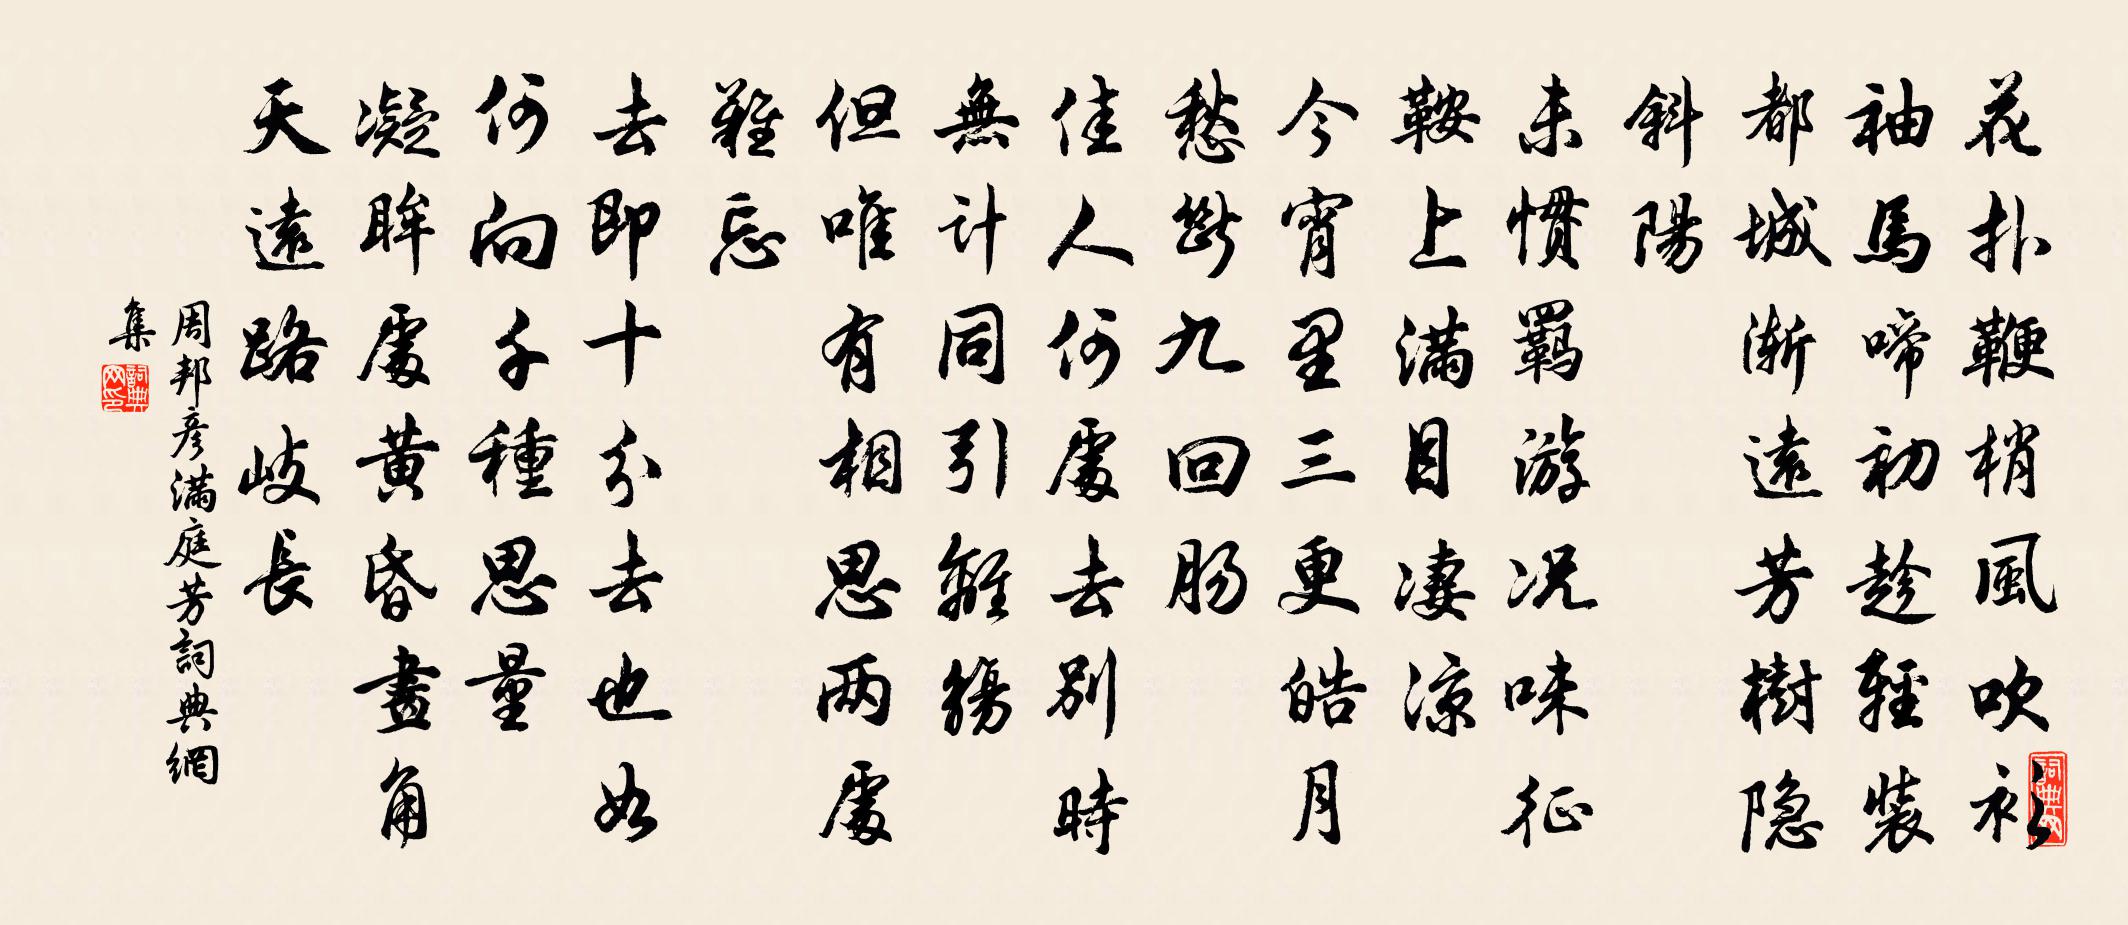 花扑鞭梢風吹衫
袖馬啼初趁輕裝
都城渐遠芳樹隐
斜陽
未慣羁游况味征
鞍上满目凄凉
今宵里三更皓月
愁斷九回肠
佳人何處去别時
無計同引離觴
但唯有相思两處
難忘
去即十分去也如
何向千種思量
凝眸處黄昏畫角
天遠路岐長
周邦彦满庭芳詞典網
集
詞典網印
詞典網